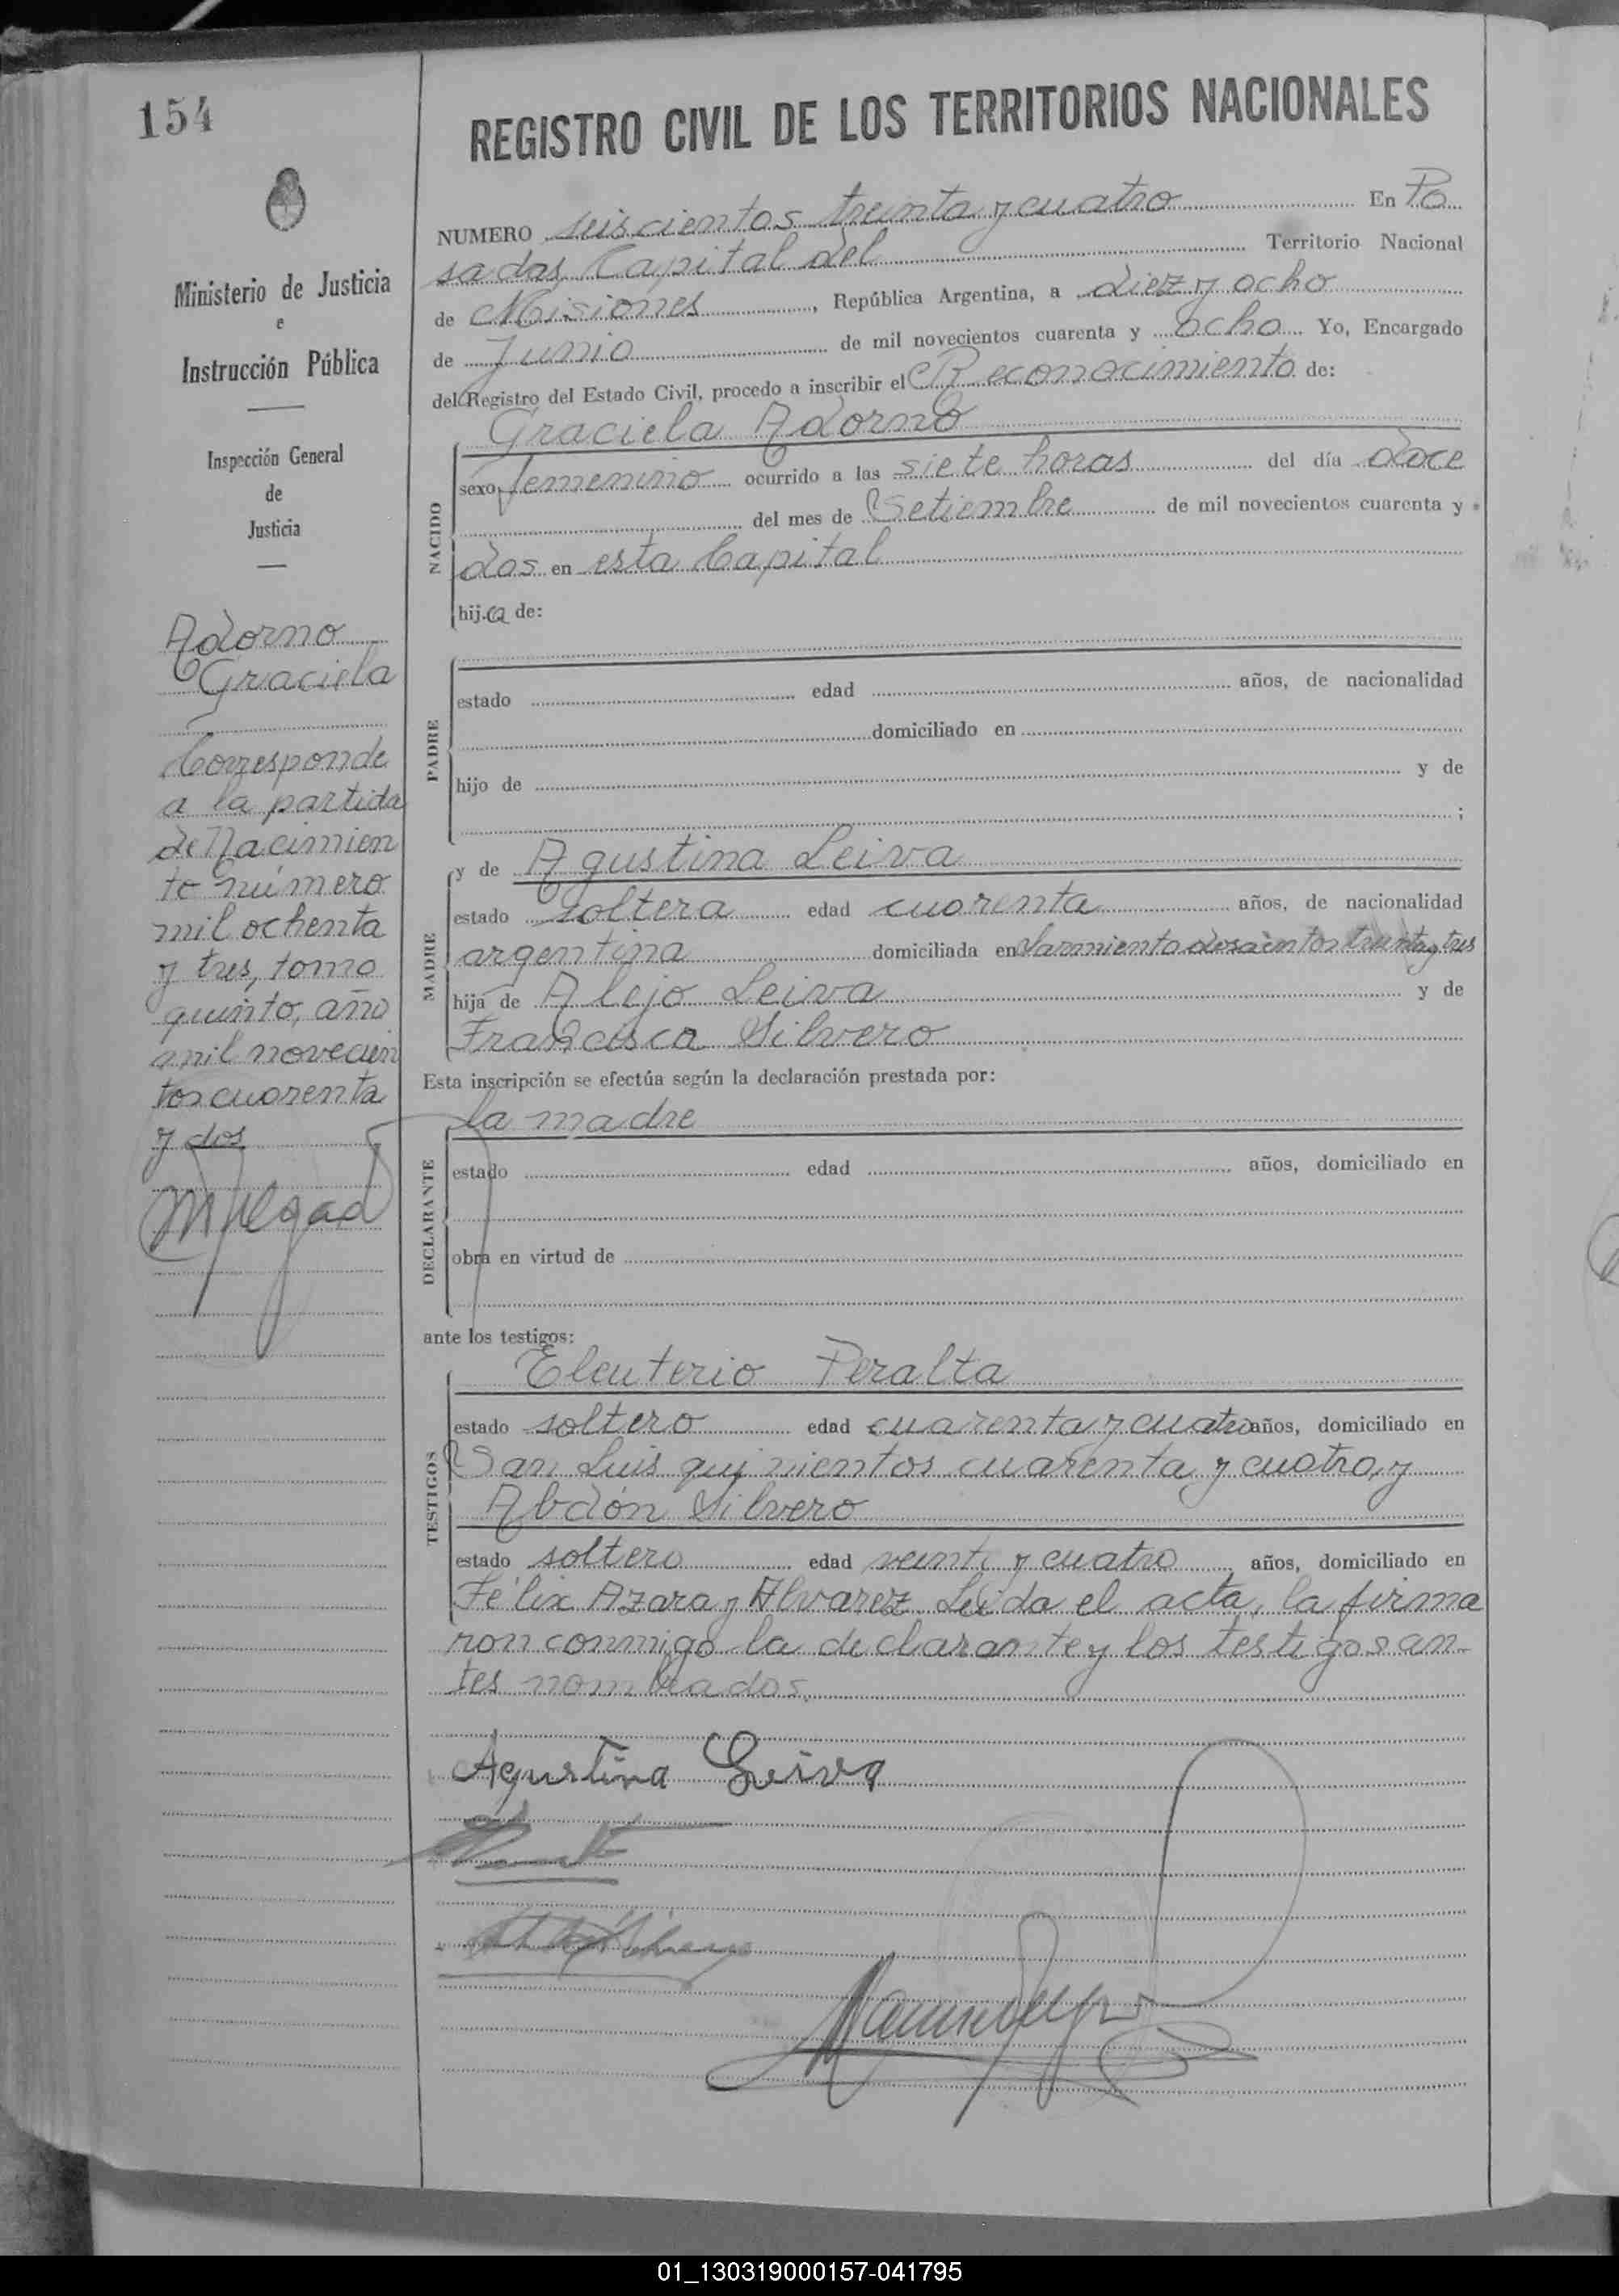 154
Ministerio de Justicia
e
Instrucción Pública
Inspección General
de
Justicia
Adorno
Graciela
Corresponde
a la partida
de Nacimien
to número
mil ochenta
y tres, tomo
quinto, año
mil novecien
tos cuarenta
y dos
REGISTRO CIVIL DE LOS TERRITORIOS NACIONALES
NUMERO seiscientos treinta y cuatro En Po
sadas, Capital del Territorio Nacional
de Misiones, República Argentina, a diez y ocho
de Junio de mil novecientos cuarenta y ocho Yo, Encargado
del Registro del Estado Civil, procedo a inscribir el Reconocimiento de:
Graciela Adorno
NACIDO
sexo femenino ocurrido a las siete horas del día doce
del mes de Setiembre de mil novecientos cuarenta y
dos en esta Capital
hija de:
PADRE
estado edad años, de nacionalidad
domiciliado en
hijo de y de
;
y de Agustina Leiva
MADRE
estado soltera edad cuarenta años, de nacionalidad
argentina domiciliada en Sarmiento doscientos treinta y tres
hija de Alejo Leiva y de
Francisca Silvero
Esta inscripción se efectúa según la declaración prestada por:
la madre
DECLARANTE
estado edad años, domiciliado en
obra en virtud de
ante los testigos:
Eleuterio Peralta
TESTIGOS
estado soltero edad cuarenta y cuatro años, domiciliado en
San Luis quinientos cuarenta y cuatro, y
Abdón Silvero
estado soltero edad veinti y cuatro años, domiciliado en
Félix Azara y Alvarez. Leida el acta, la firma
ron conmigo la declarante y los testigos an-
tes nombrados.
Agustina Leiva
01_130319000157-041795